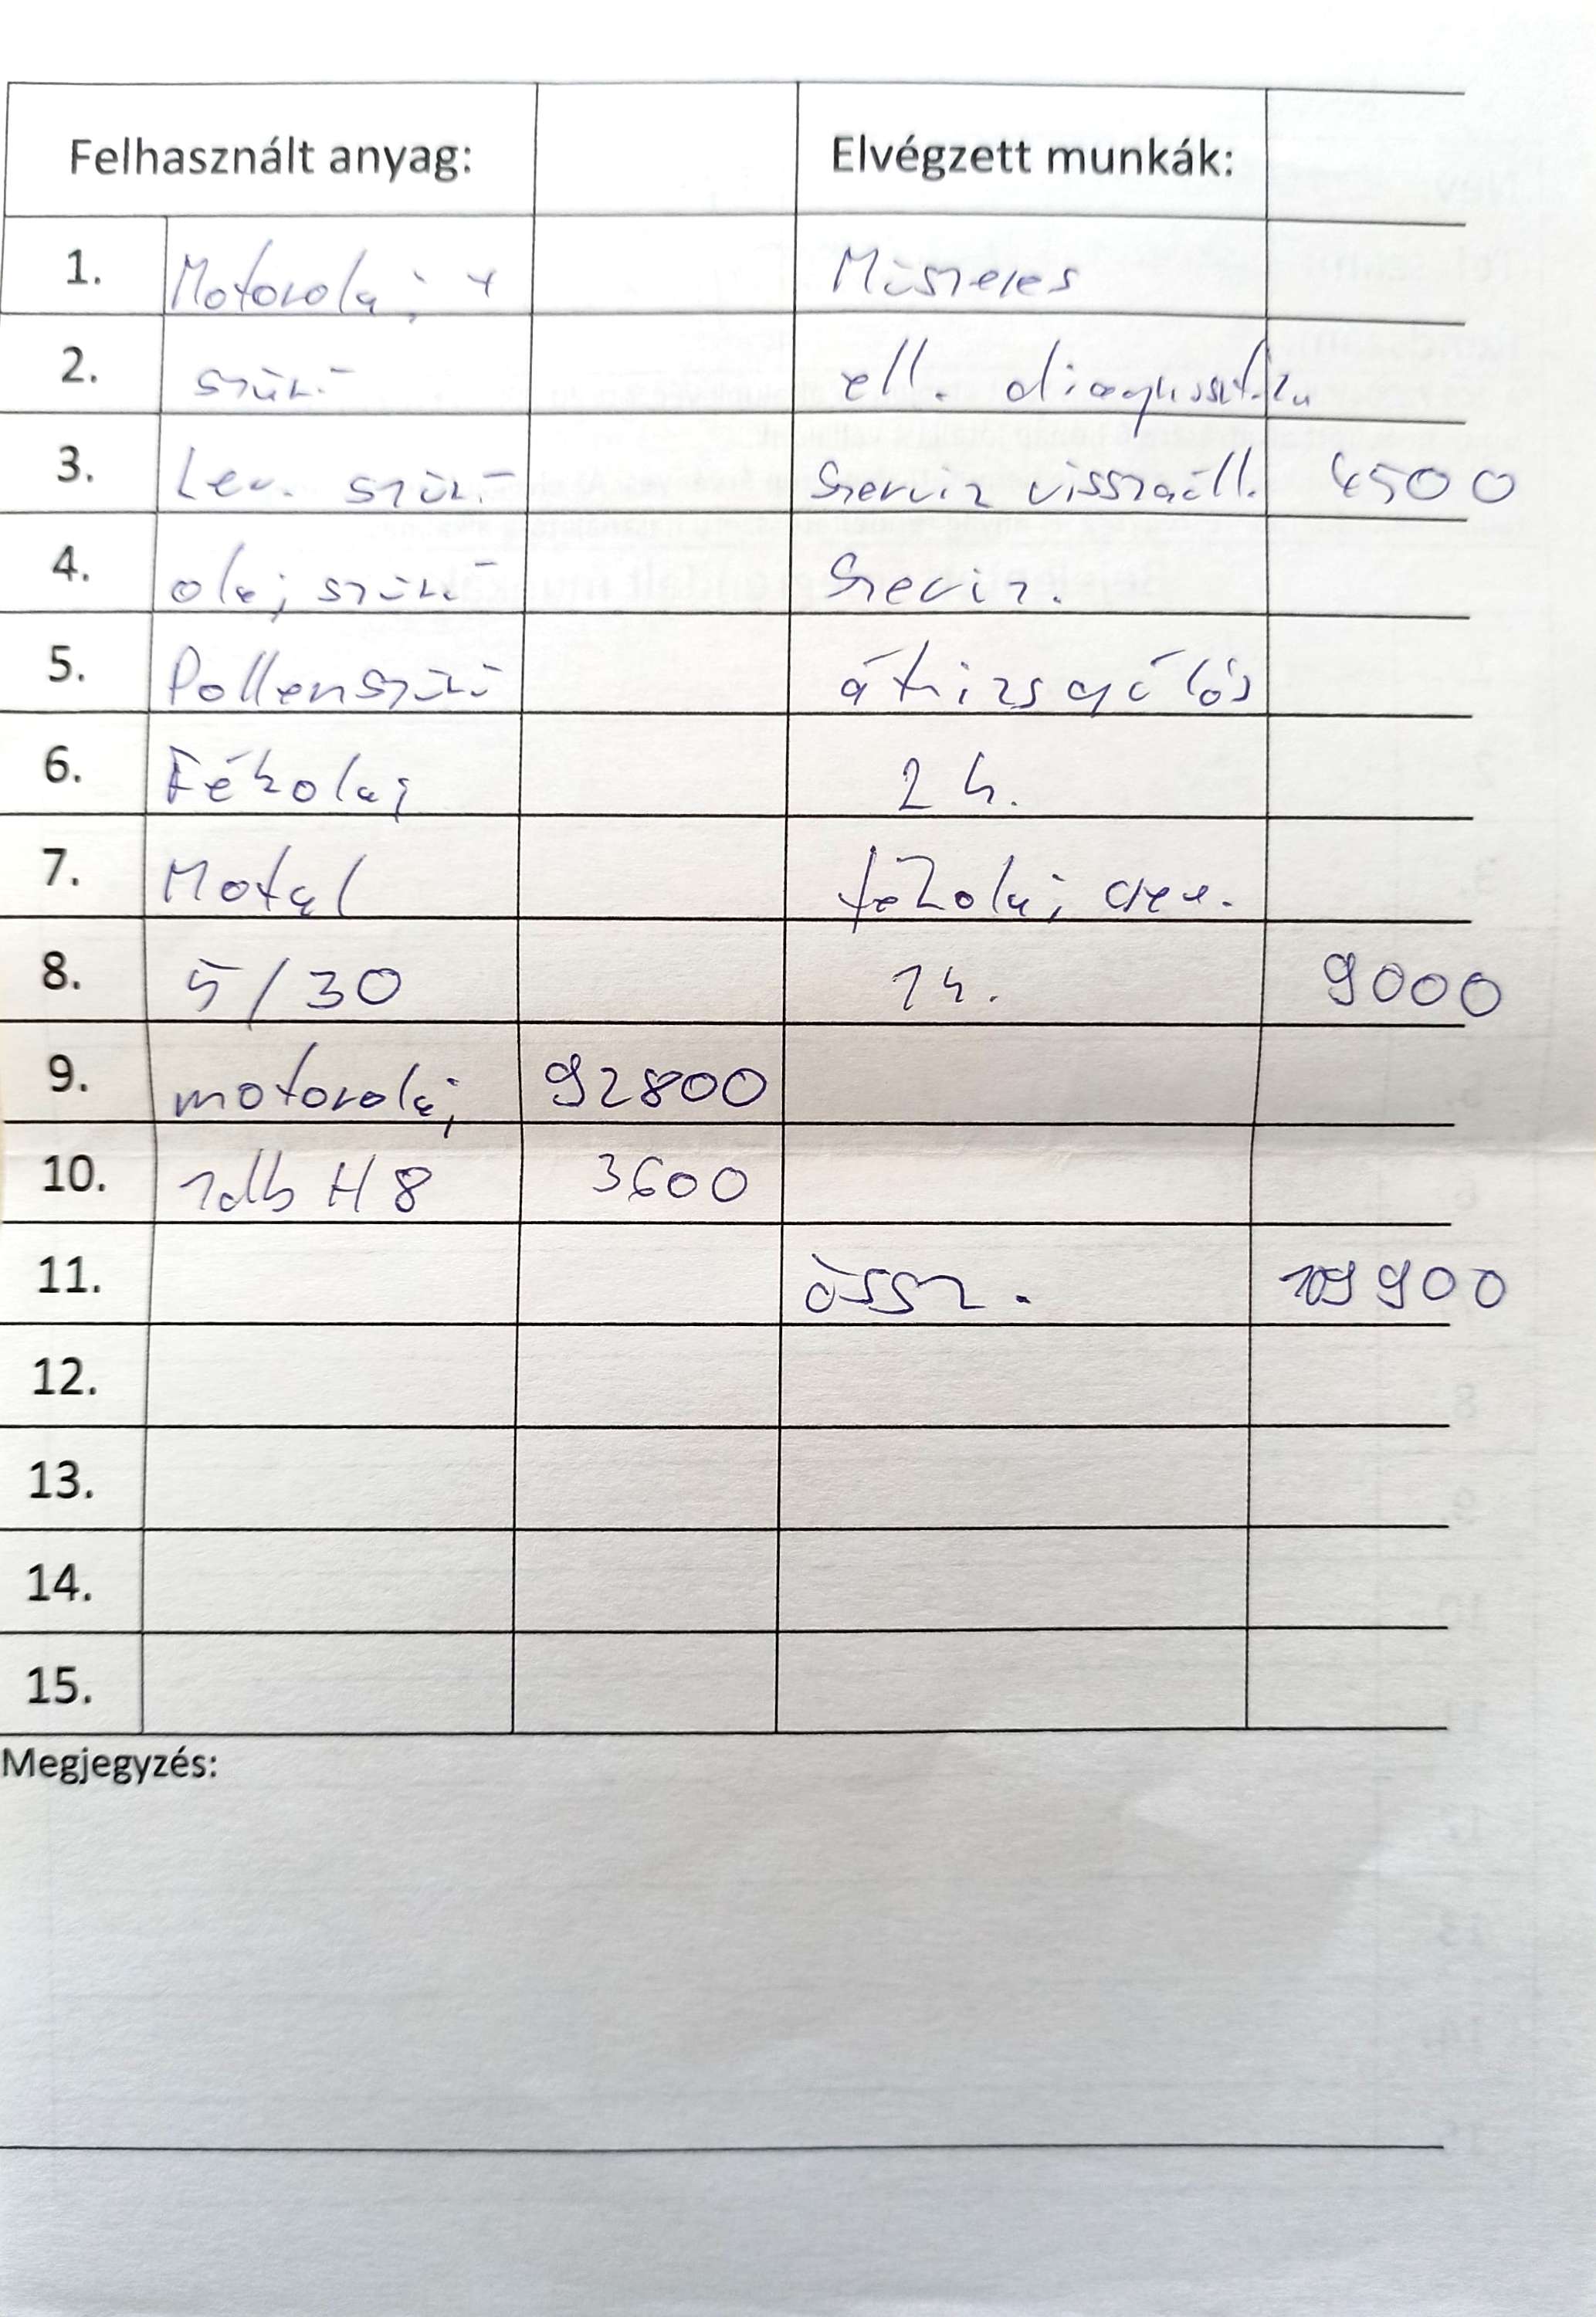 Felhasznált anyag: Elvégzett munkák:
1. Motorolaj + Műszeres
2. szűrő ell. diagnosztika
3. Lev. szűrő Szerviz visszaáll. 4500
4. olajszűrő Szerviz.
5. Pollenszűrő átvizsgálás
6. Fékolaj 2 h.
7. Motul fékolaj csere.
8. 5/30 1 h. 9000
9. motorolaj 92800
10. 1db H8 3600
11. össz. 109900
12.
13.
14.
15.
Megjegyzés: